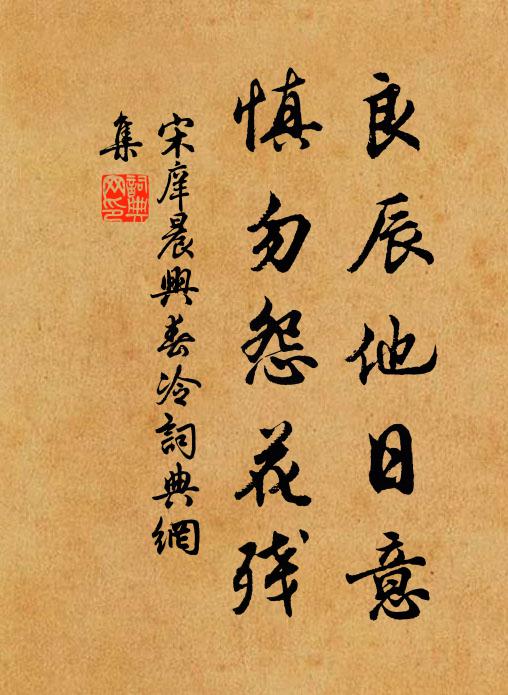 良辰他日意
慎勿怨花残
宋庠晨興春冷詞典網
集
詞典
网印